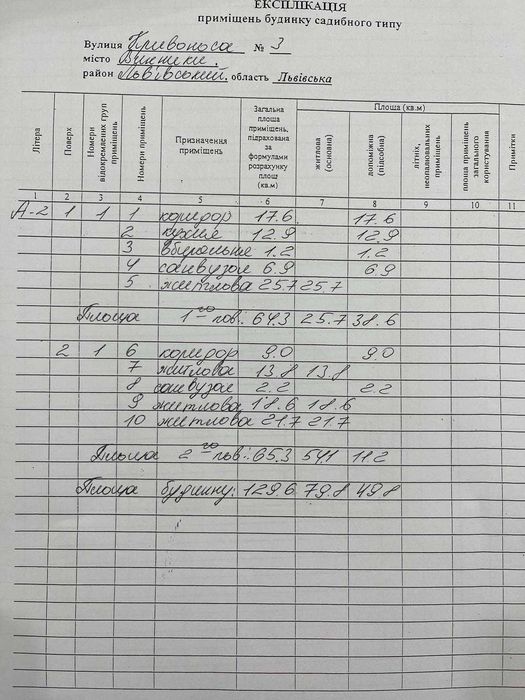 ЕКСПЛІКАЦІЯ
приміщень будинку садибного типу
Вулиця Кривоноса № 3
місто Винники,
район Львівський, область Львівська
Літера
Поверх
Номери відокремлених груп приміщень
Номери приміщень
Призначення приміщень
Загальна площа приміщень, підрахована за формулами розрахунку площ (кв.м)
Площа (кв.м)
житлова (основна)
допоміжна (підсобна)
літніх, неопалювальних приміщень
площа приміщень загального користування
Примітки
1 2 3 4 5 6 7 8 9 10 11
А-2 1 1 1 коридор 17.6 17.6
2 кухня 12.9 12.9
3 вбиральня 1.2 1.2
4 санвузол 6.9 6.9
5 житлова 25.7 25.7
Площа 1го пов.: 64.3 25.7 38.6
2 1 6 коридор 9.0 9.0
7 житлова 13.8 13.8
8 санвузол 2.2 2.2
9 житлова 18.6 18.6
10 житлова 21.7 21.7
Площа 2го пов.: 65.3 54.1 11.2
Площа будинку: 129.6 79.8 49.8